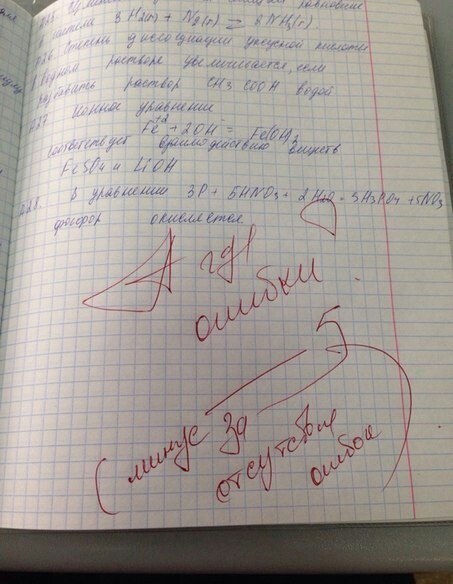 равновесие
3 H2(г) + N2(г) = 2NH3(г).
А26. Степень диссоциации уксусной кислоты
в водном растворе увеличивается, если
разбавить раствор CH3COOH водой
А27 Ионное уравнение
Fe+2 + 2OH- = Fe(OH)2
соответствует взаимодействию веществ
FeSO4 и LiOH
А28. В уравнении 3P + 5HNO3 + 2H2O = 3H3PO4 + 5NO
фосфор окисляется.
А где
ошибки
5
(минус за
отсутствие
ошибок